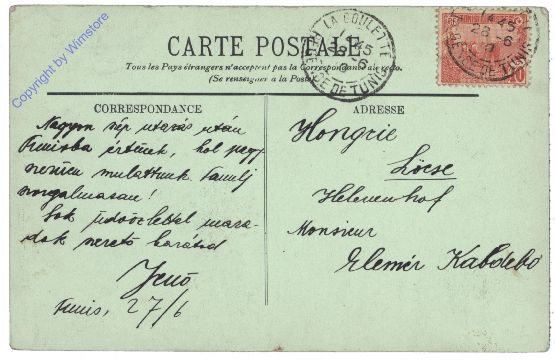 Copyright by Wimstore
CARTE POSTALE
Tous les Pays étrangers n'acceptent pas la Correspondance au recto.
(Se renseigner à la Poste)
LA GOULETTE
RÉGENCE DE TUNIS
CORRESPONDANCE
Nagyon szép utazás után
Tunisba értünk, hol
mulattunk
szorgalmasan!
Sok üdvözlettel mara-
dok szerető barátod
Jenő
Tunis, 27/6
ADRESSE
Hongrie
Löcse
Helenenhof
Monsieur
Elemér Kabdebó